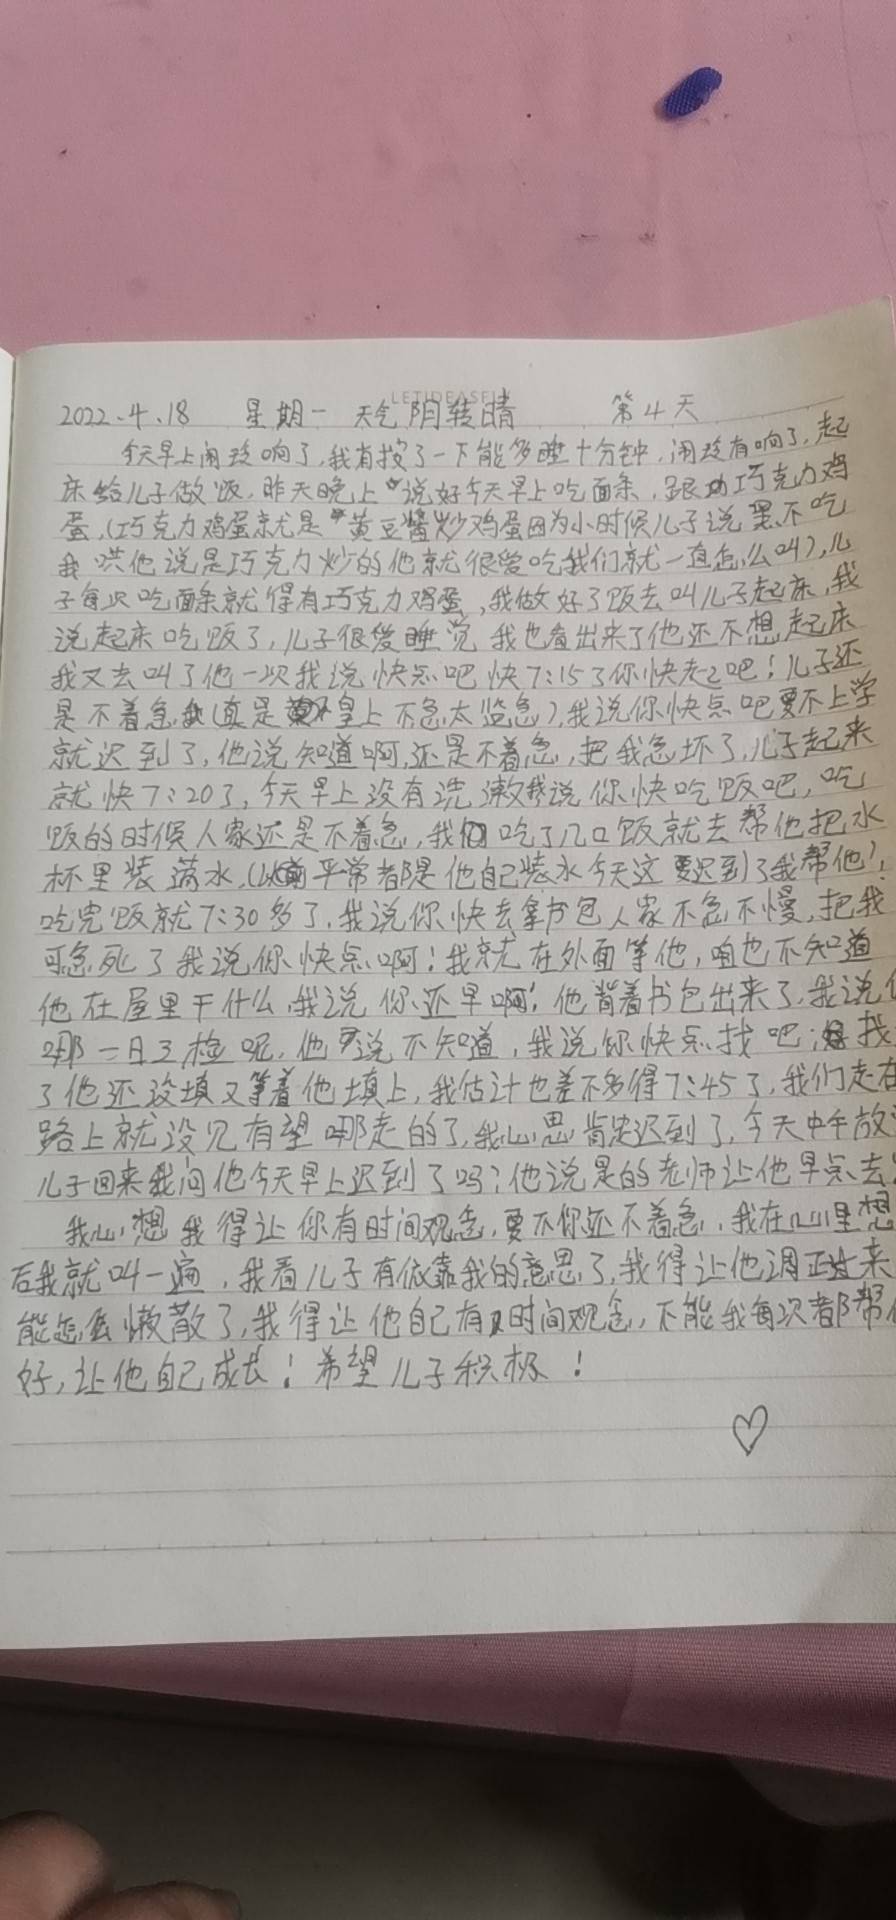 LETIDEASEE
2022.4.18 星期一 天气 阴转晴 第4天
今天早上闹玲响了,我有按了一下能多睡十分钟,闹玲有响了,起
床给儿子做饭,昨天晚上说好今天早上吃面条,跟巧克力鸡
蛋,(巧克力鸡蛋就是"黄豆酱炒鸡蛋因为小时候儿子说黑不吃
我哄他说是巧克力炒的他就很爱吃我们就一直怎么叫),儿
子每次吃面条就得有巧克力鸡蛋,我做好了饭去叫儿子起床,我
说起床吃饭了,儿子很爱睡觉我也看出来了他还不想起床
我又去叫了他一次我说快点吧快7:15了你快走吧!儿子还
是不着急(真是皇上不急太监急),我说你快点吧要不上学
就迟到了,他说知道啊,还是不着急,把我急坏了,儿子起来
就快7:20了,今天早上没有洗漱我说你快吃饭吧,吃
饭的时候人家还是不着急,我吃了几口饭就去帮他把水
杯里装满水,(以前平常都是他自己装水今天这要迟到了我帮他),
吃完饭就7:30多了,我说你快去拿书包人家不急不慢,把我
可急死了我说你快点啊!我就在外面等他,咱也不知道
他在屋里干什么,我说你还早啊!他背着书包出来了,我说
哪一日三检呢,他说不知道,我说你快点找吧,找
了他还没填又等着他填上,我估计也差不多得7:45了,我们走在
路上就没见有望哪走的了,我心思肯定迟到了,今天中午放
儿子回来我问他今天早上迟到了吗?他说是的老师让他早点去
我心想我得让你有时间观念,要不你还不着急,我在心里想
后我就叫一遍,我看儿子有依靠我的意思了,我得让他调正过来
能怎么懒散了,我得让他自己有时间观念,不能我每次都帮
好,让他自己成长!希望儿子积极!